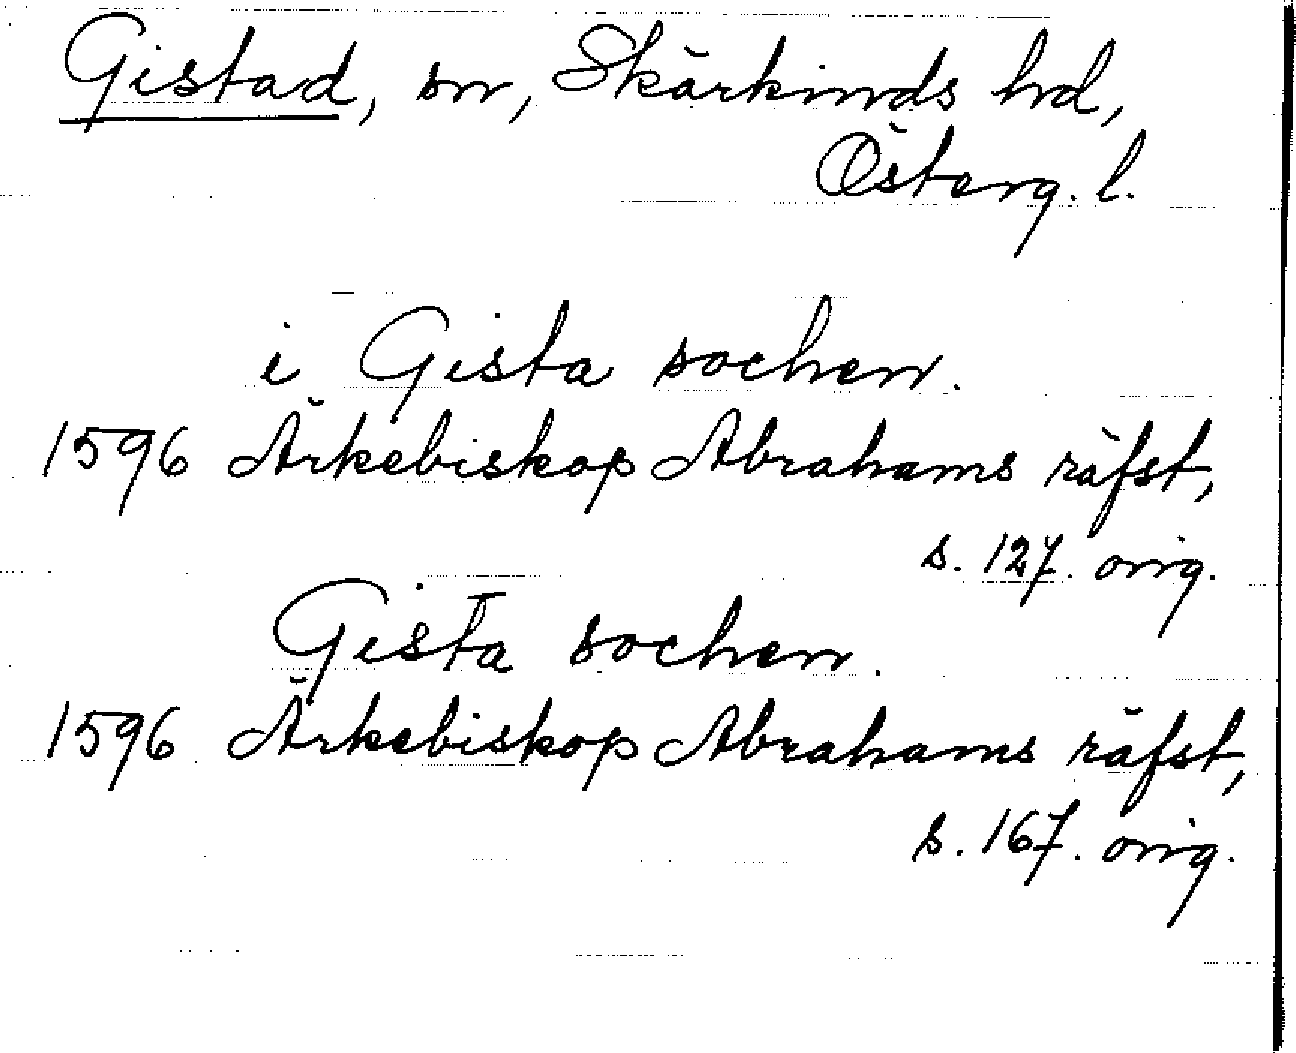 Gistad, sn, Skärkinds hd,
Österg. l.
i Gista sochen.
1596 Ärkebiskop Abrahams räfst,
s. 127. orig.
Gista sochen.
1596 Ärkebiskop Abrahams räfst,
s. 167. orig.